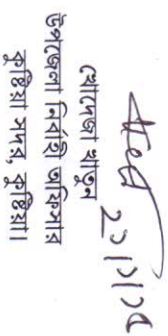 খোদেজা খাতুন
উপজেলা নির্বাহী অফিসার
কুষ্টিয়া সদর, কুষ্টিয়া।